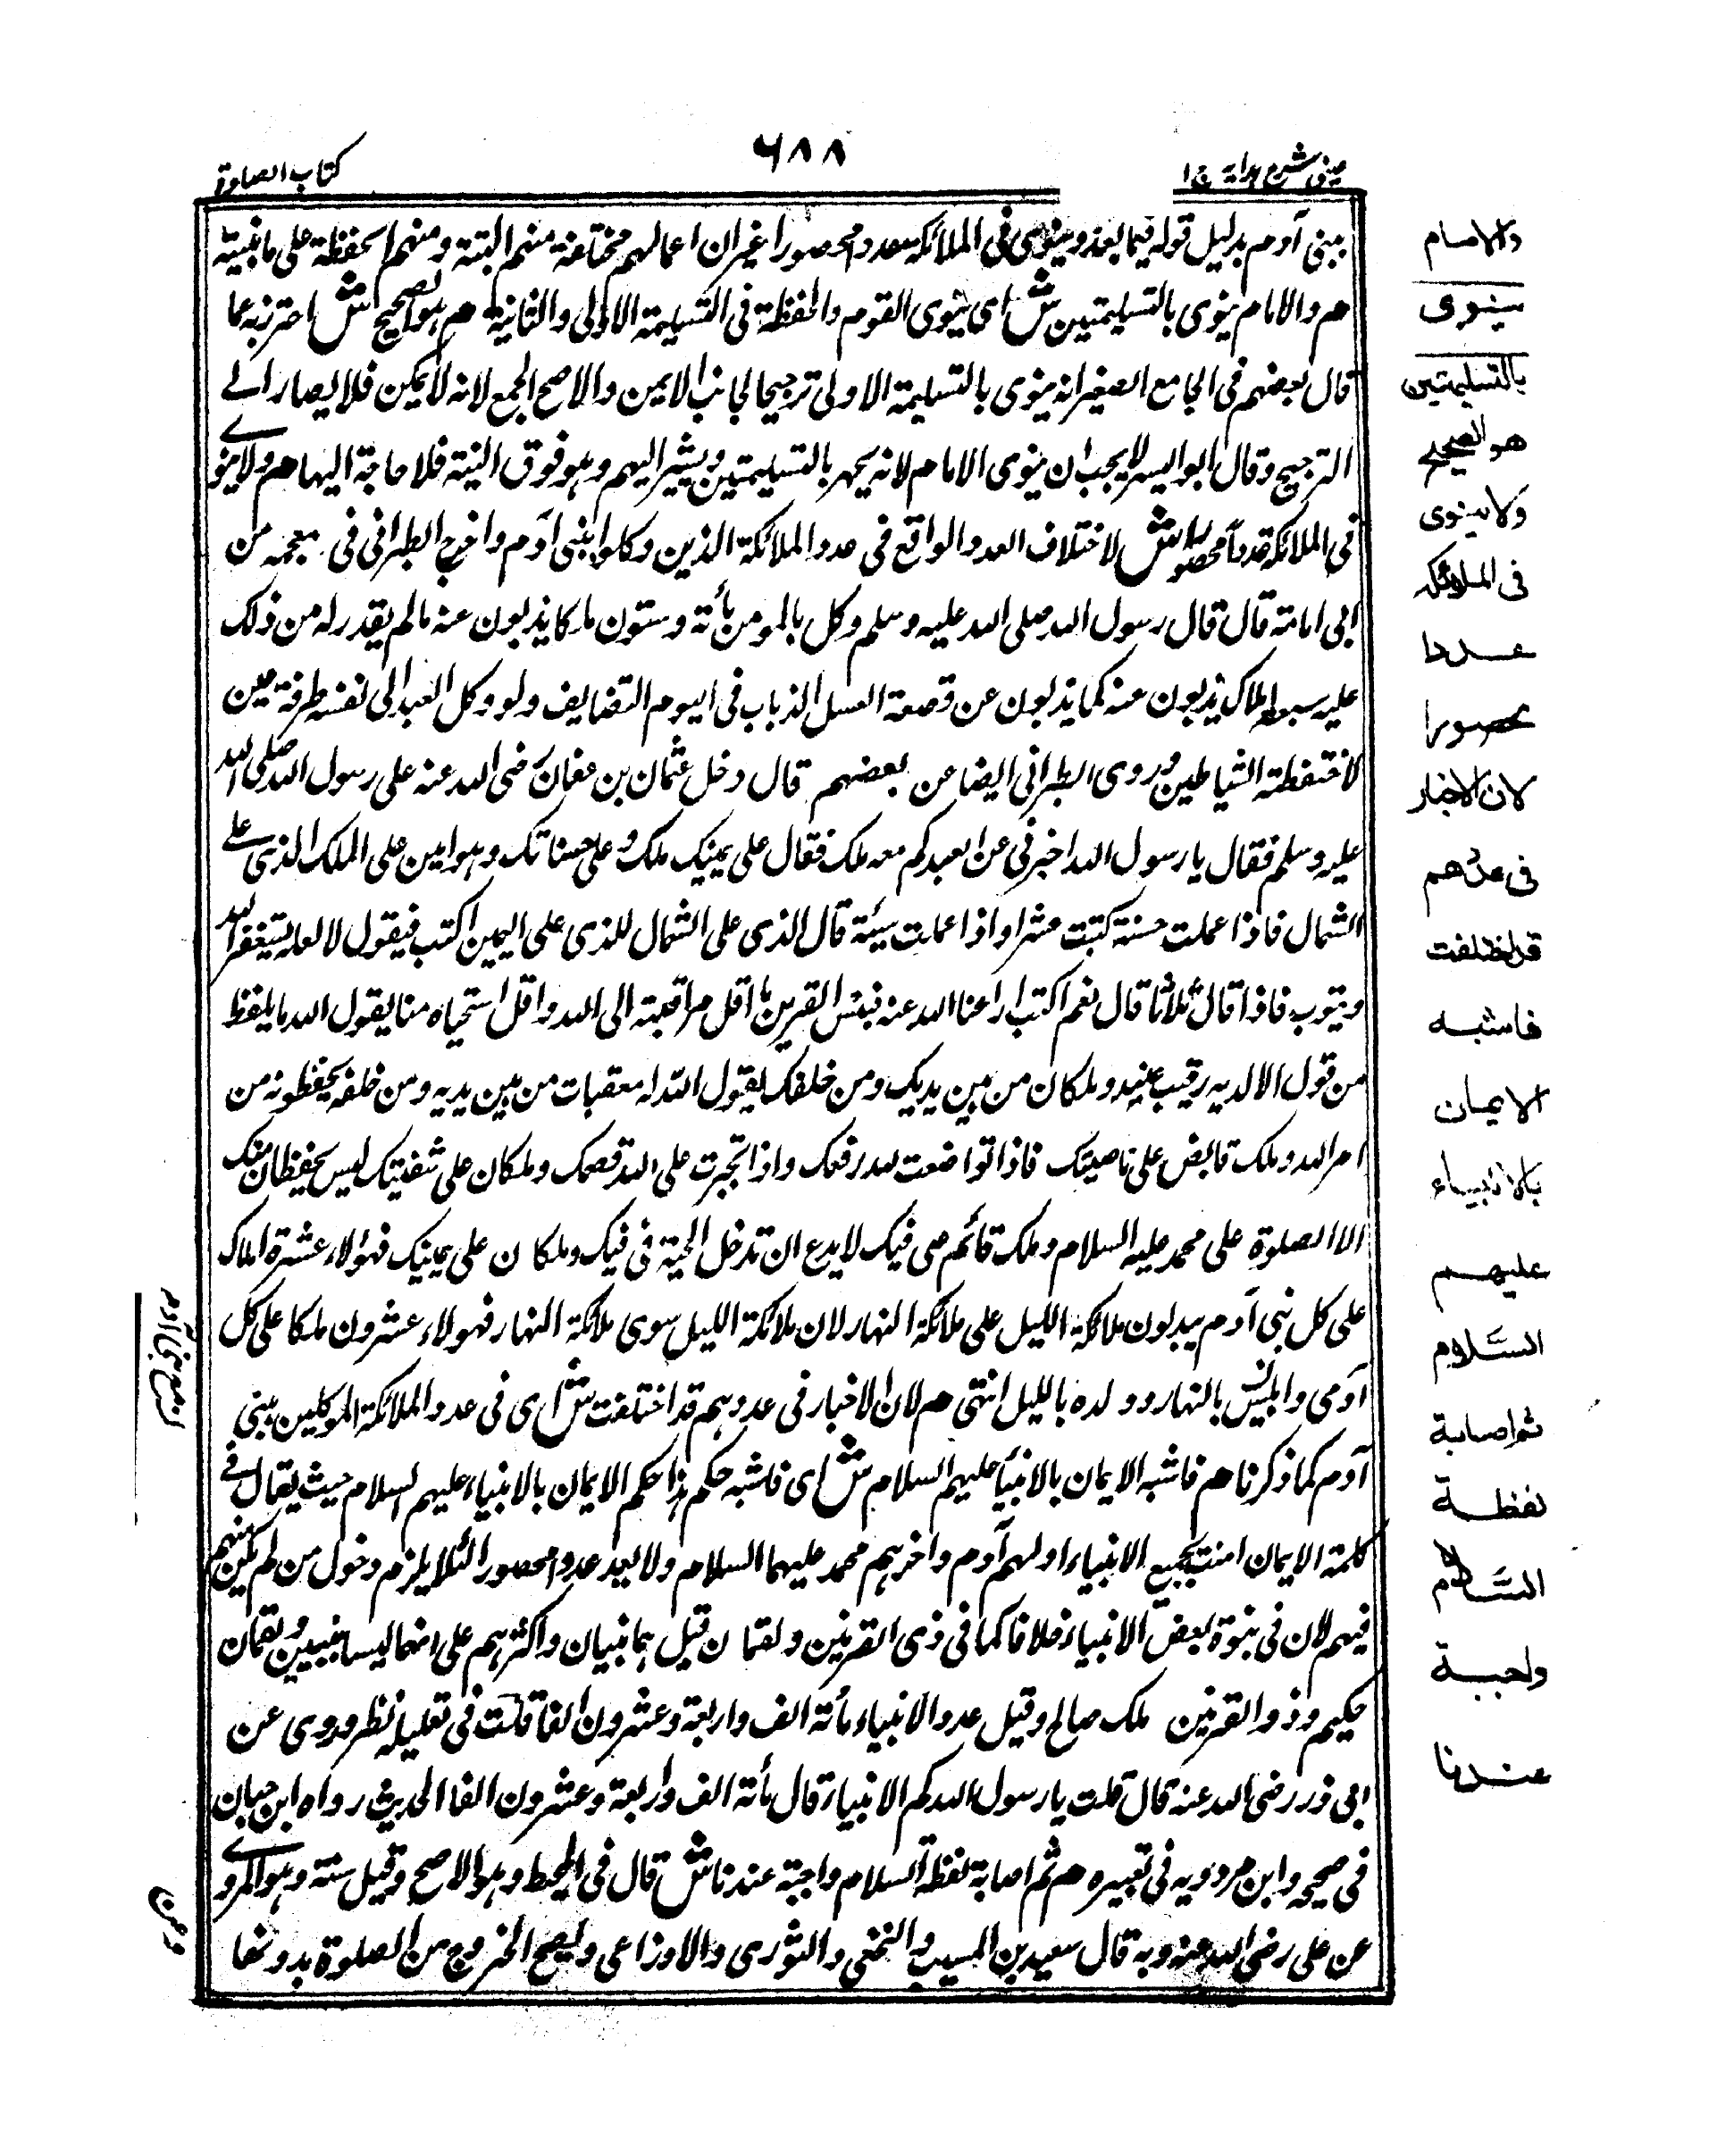 عينى شرح هداية ج ١
٦٨٨
كتاب الصلوة
ببنى آدم بدليل قوله فيما بعد و ينوى فى الملائكة عددا محصورا غير ان اعمالهم مختلفة منهم الكتبة ومنهم الحفظة على ما نبينه
هم والامام ينوى بالتسليمتين ش اى ينوى القوم والحفظة فى التسليمة الاولى والثانية هم هو الصحيح ش احترز به عما
قال بعضهم فى الجامع الصغير انه ينوى بالتسليمة الاولى ترجيحا لجانب الايمن والاصح الجمع لانه لا يمكن فلا يصار الى
الترجيح وقال ابو اليسر لا يجب ان ينوى الامام لانه يجهر بالتسليمتين ويشير اليهم وهو فوق النية فلا حاجة اليها هم ولا ينوى
فى الملائكة عددا محصورا ش لاختلاف العدد الواقع فى عدد الملائكة الذين وكلوا ببنى آدم واخرج الطبرانى فى معجمه من
ابى امامة قال قال رسول الله صلى الله عليه وسلم وكل بالمومن مأة وستون ملكا يذبون عنه مالم يقدر له من ذلك
عليه سبعة املاك يذبون عنه كما يذبون عن قصعة العسل الذباب فى اليوم الصايف ولو وكل العبد الى نفسه طرفة عين
لاختفطته الشياطين وروى الطبرانى ايضا عن بعضهم قال دخل عثمان بن عفان رضى الله عنه على رسول الله صلى الله
عليه وسلم فقال يا رسول الله اخبرنى عن العبد كم معه ملك فقال على يمينك ملك على حسناتك وهو امين على الملك الذى على
الشمال فاذا عملت حسنة كتبت عشرا واذا عملت سيئة قال الذى على الشمال للذى على اليمين اكتب فيقول لا لعله يستغفر الله
ويتوب فاذا قال ثلاثا قال نعم اكتب اراحنا الله عنه فبئس القرين ما اقل مراقبته الى الله واقل استحياه منا يقول الله ما يلفظ
من قول الا لديه رقيب عتيد وملكان من بين يديك ومن خلفك يقول الله له معقبات من بين يديه ومن خلفه يحفظونه من
امر الله وملك قابض على ناصيتك فاذا تواضعت لله رفعك واذا تجبرت على الله قصمك وملكان على شفتيك ليس يحفظان منك
الا الصلوة على محمد عليه السلام وملك قائم على فيك لا يدع ان تدخل الحية فى فيك وملكان على يمينك فهؤلاء عشرة املاك
على كل بنى آدم يبدلون ملائكة الليل على ملائكة النهار لان ملائكة الليل سوى ملائكة النهار فهولاء عشرون ملكا على كل
آدمى وابليس بالنهار وولده بالليل انتهى هم لان الاخبار فى عددهم قد اختلفت ش اى فى عدد الملائكة الموكلين ببنى
آدم كما ذكرنا هم فاشبه الايمان بالانبيآ عليهم السلام ش اى فاشبه حكم هذا حكم الايمان بالانبياء عليهم السلام حيث يقال فى
كلمة الايمان امنت بجميع الانبياء اولهم آدم واخرهم محمد عليهما السلام ولا يعد عددا محصورا لئلا يلزم دخول من لم يكن منهم
فيهم لان فى نبوة بعض الانبياء خلافا كما فى ذى القرنين ولقمان قيل هما نبيان واكثرهم على انهما ليسا نبيين ولقمان
حكيم وذو القرنين ملك صالح وقيل عدد الانبياء مأة الف واربعة وعشرون الفا قلت فى تعليله نظر وروى عن
ابى ذر رضى الله عنه قال قلت يا رسول الله كم الانبياء قال مأة الف واربعة وعشرون الفا الحديث رواه ابن حبان
فى صحيحه وابن مردويه فى تعبيره هم ثم اصابة لفظة السلام واجبة عندنا ش قال فى المحيط وهو الاصح وقيل سنة وهو المروى
عن على رضى الله عنه وبه قال سعيد بن المسيب والنخعى والثورى والاوزاعى ويصح الخروج من الصلوة بدونها
والامام
ينوى
بالتسليمتين
هو الصحيح
ولا ينوى
فى الملائكه
عددا
محصورا
لان الاخبار
فى عددهم
قد اختلفت
فاشبه
الايمان
بالانبياء
عليهم
السَّلام
ثم اصابة
لفظة
السَّلام
واجبة
عندنا